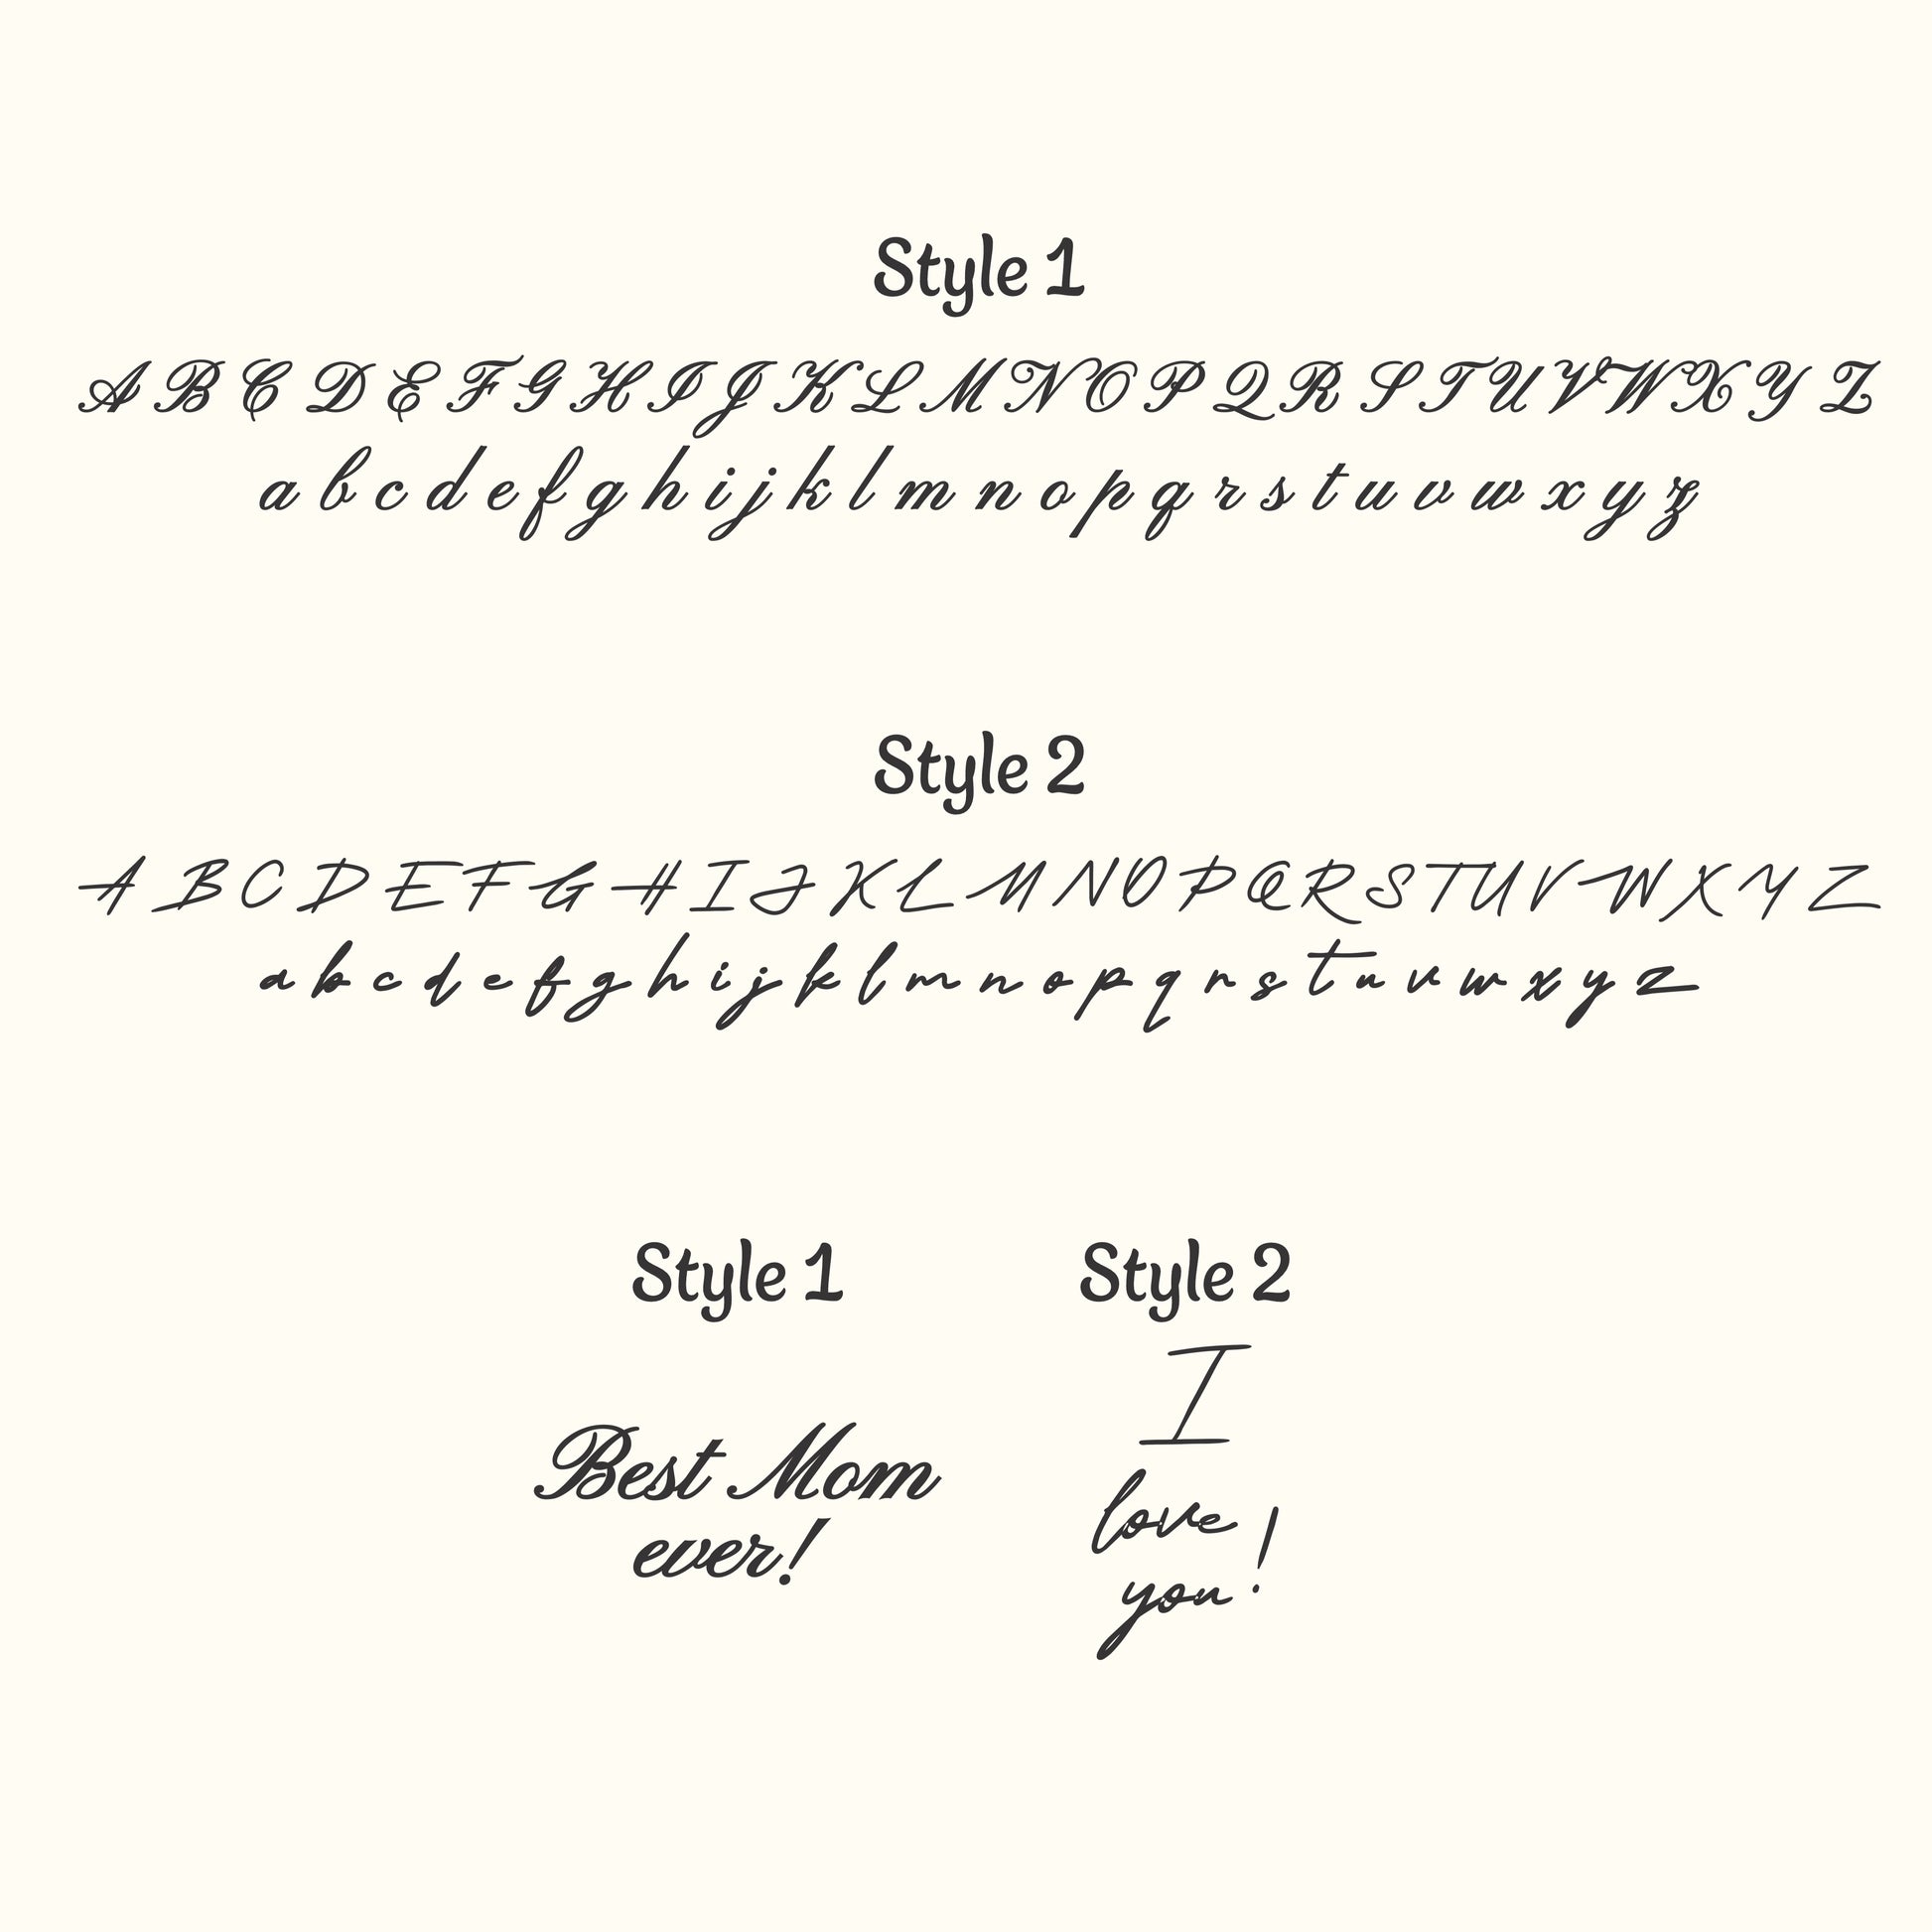 Style 1
A B C D E F G H I J K L M N O P Q R S T U V W X Y Z
a b c d e f g h i j k l m n o p q r s t u v w x y z
Style 2
A B C D E F G H I J K L M N O P Q R S T U V W X Y Z
a b c d e f g h i j k l m n o p q r s t u v w x y z
Style 1
Best Mom
ever!
Style 2
I
love
you!